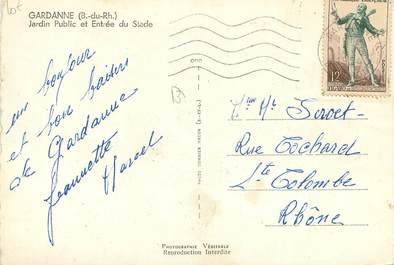 GARDANNE (B.-du-Rh.)
Jardin Public et Entrée du Stade
un bonjour
et bon baisers
de Gardanne
Jeannette
Marcel
12F
Rue Cochard
Ste Colombe
Rhône
PHOTOGRAPHIE VÉRITABLE
Reproduction Interdite